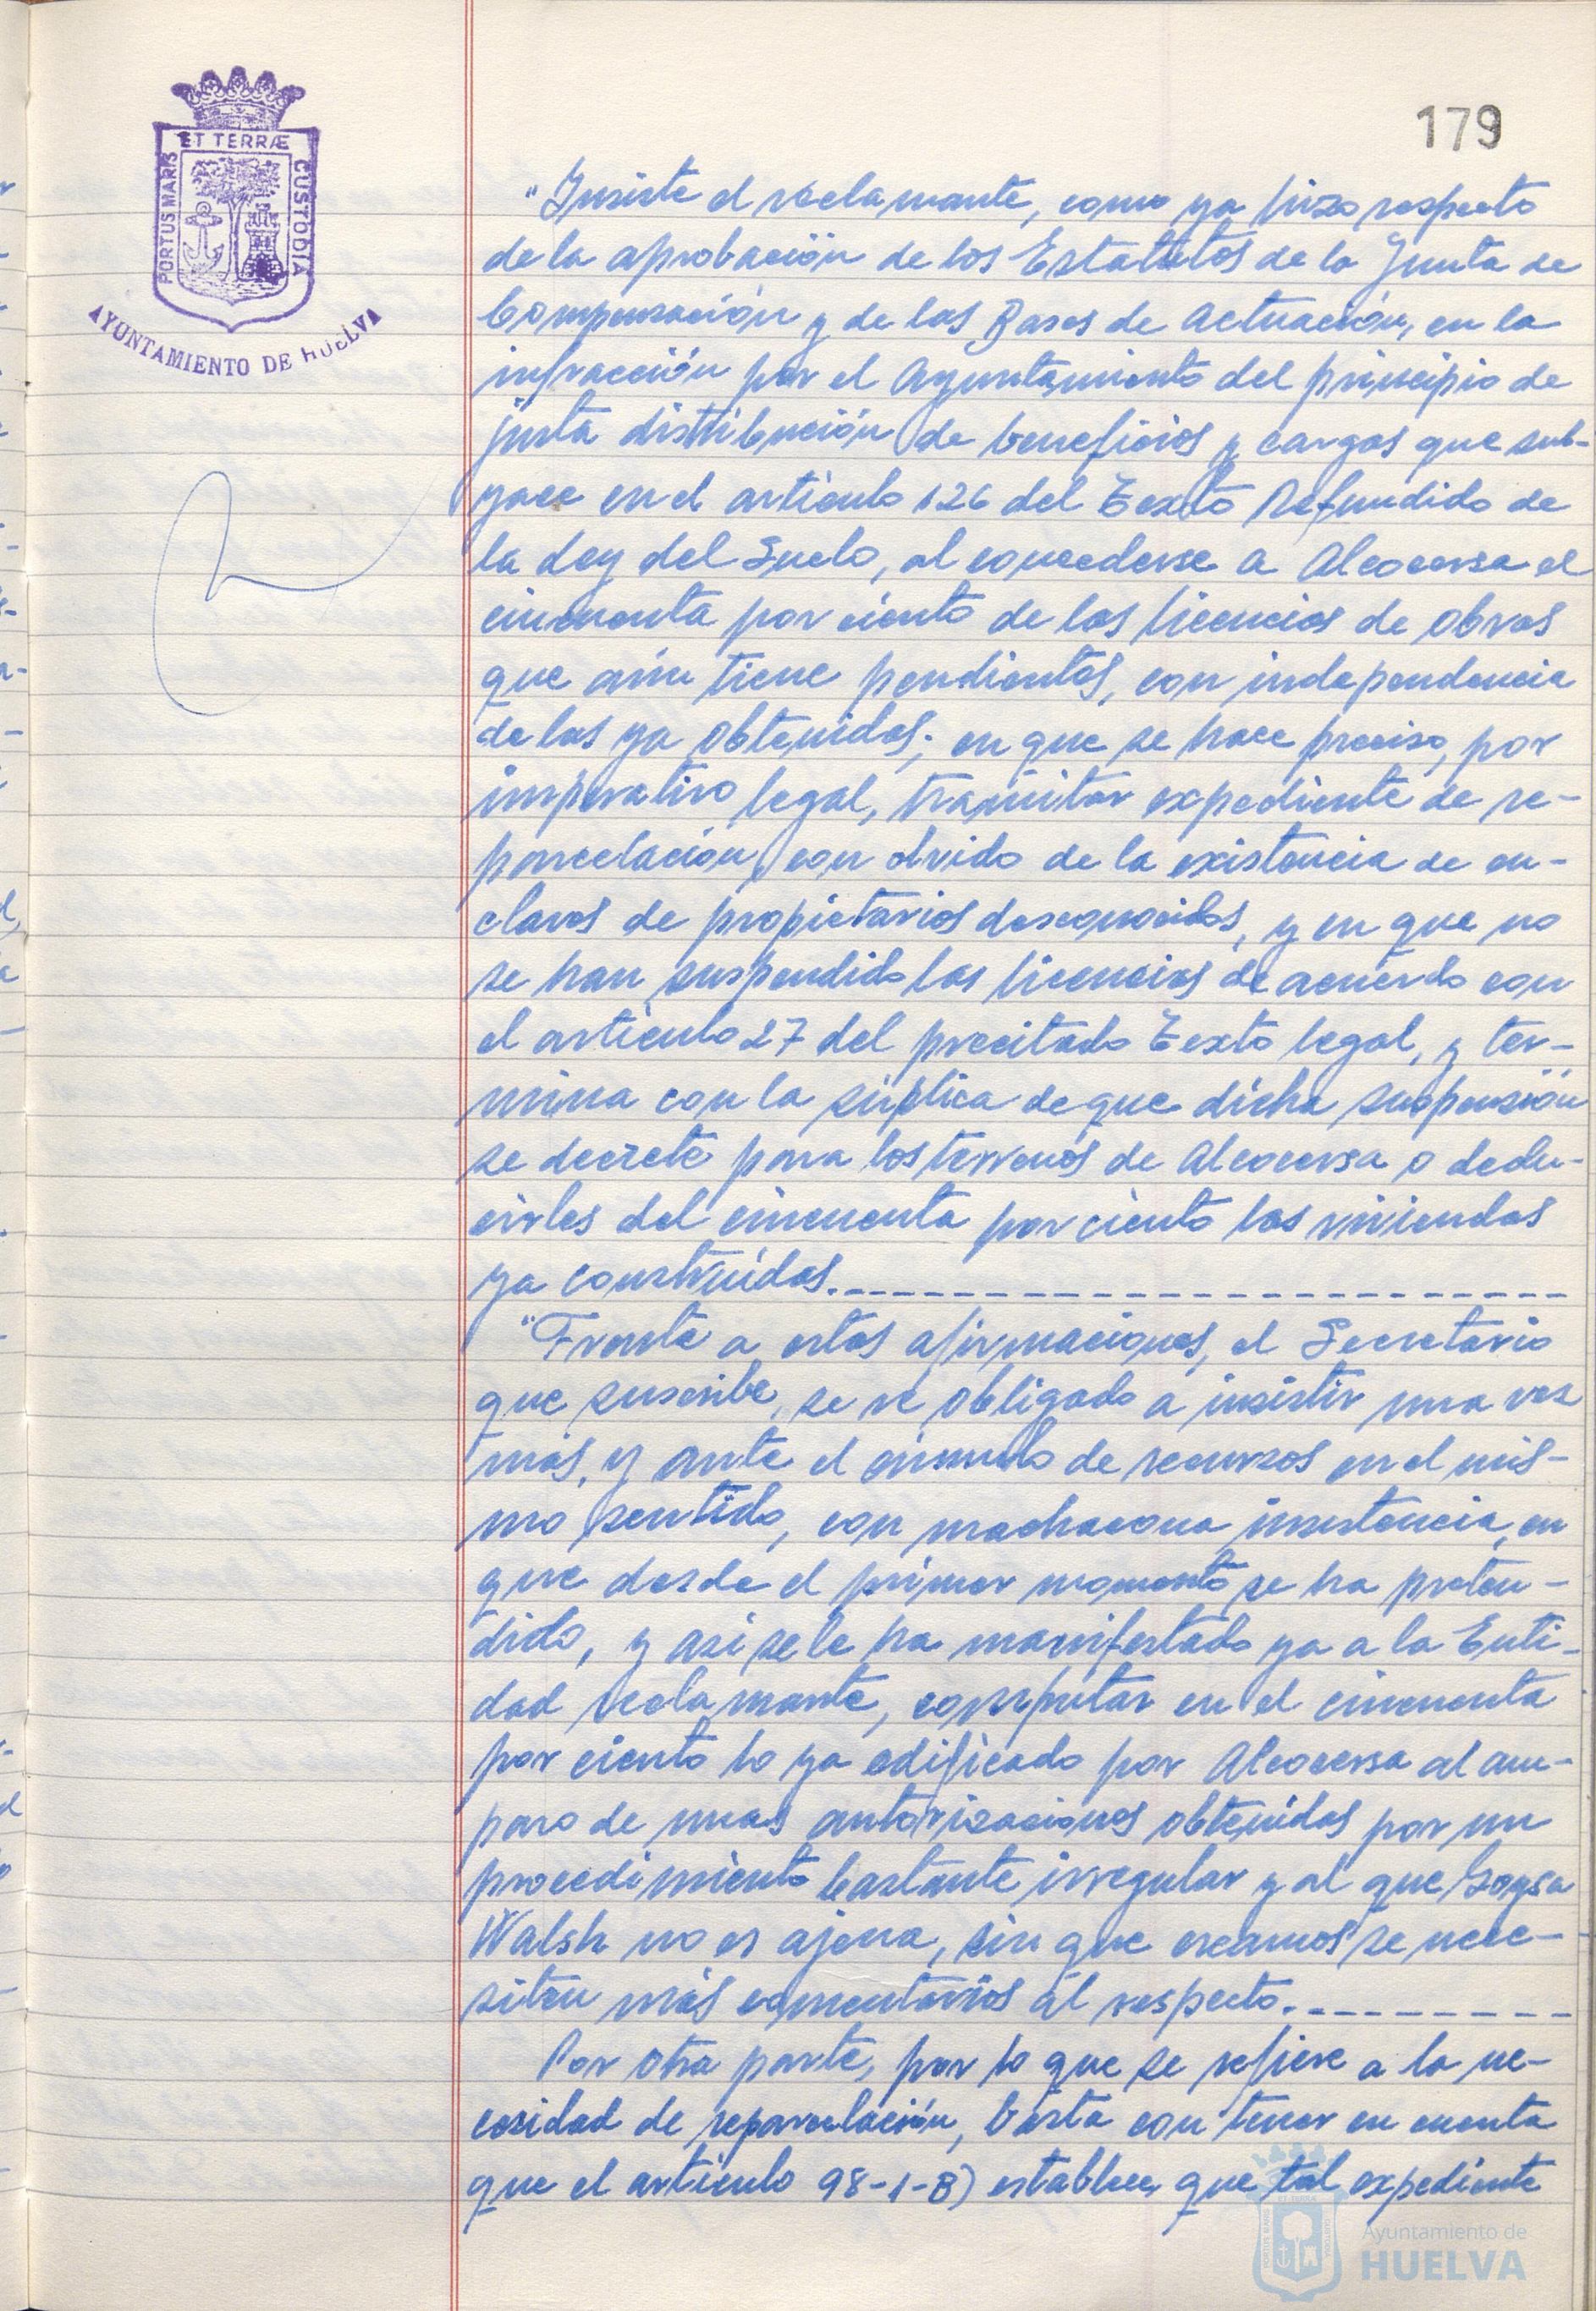 179
ET TERRÆ
PORTUS MARIS
CUSTODIA
AYUNTAMIENTO DE HUELVA
"Insiste el reclamante, como ya hizo respecto
de la aprobación de los Estatutos de la Junta de
Compensación y de las Bases de Actuación, en la
infracción por el Ayuntamiento del principio de
justa distribución de beneficios y cargas que sub-
yace en el artículo 126 del Texto Refundido de
la Ley del Suelo, al concederse a Alcocersa el
cincuenta por ciento de las licencias de obras
que aún tiene pendientes, con independencia
de las ya obtenidas; en que se hace preciso, por
imperativo legal, tramitar expediente de re-
parcelación, con olvido de la existencia de en-
claves de propietarios desconocidos, y en que no
se han suspendido las licencias de acuerdo con
el artículo 27 del precitado Texto legal, y ter-
mina con la súplica de que dicha suspensión
se decrete para los terrenos de Alcocersa o dedu-
cirles del cincuenta por ciento las viviendas
ya construidas.
"Frente a estas afirmaciones, el Secretario
que suscribe, se ve obligado a insistir una vez
más, y ante el cúmulo de recursos en el mis-
mo sentido, con machacona insistencia, en
que desde el primer momento se ha preten-
dido, y así se le ha manifestado ya a la Enti-
dad reclamante, computar en el cincuenta
por ciento lo ya edificado por Alcocersa al am-
paro de unas autorizaciones obtenidas por un
procedimiento bastante irregular y al que
Walsh no es ajena, sin que creamos se nece-
siten más comentarios al respecto.
Por otra parte, por lo que se refiere a la ne-
cesidad de reparcelación, basta con tener en cuenta
que el artículo 98-1-B) establece que tal expediente
Ayuntamiento de
HUELVA